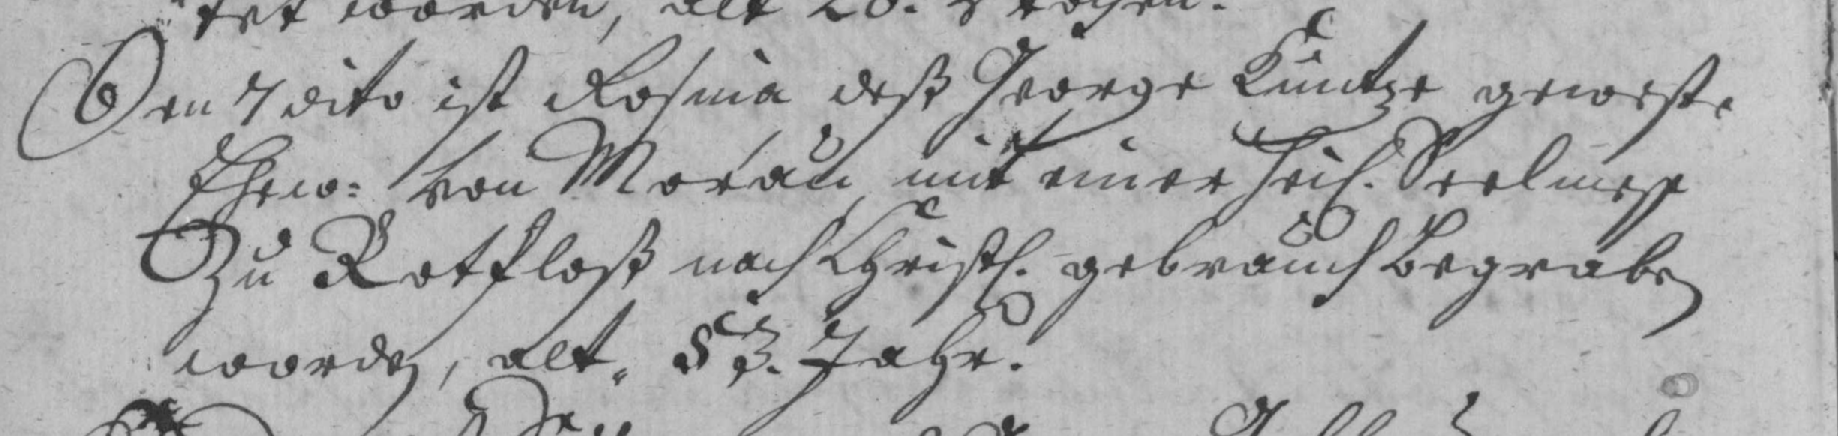 tet worden, alt 20. Wochen.
Den 7 dito ist Rosina deß George Kuntze geweste
Ehew: von Morau, mit einer heil. Seelmeß
Zu Rotfloß nach Christl. gebrauch begraben
worden, alt. 53. Jahr.